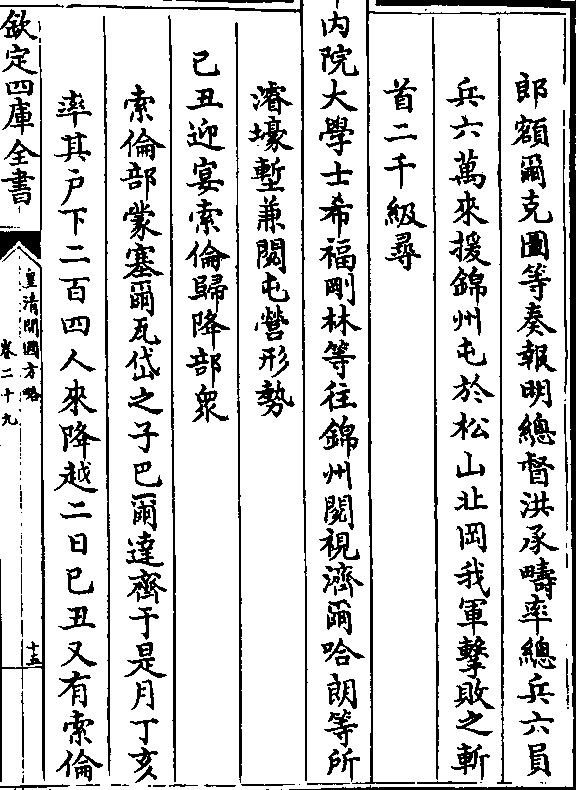 郎額爾克圖等奏報明總督洪承疇率總兵六員
兵六萬來援錦州屯於松山北岡我軍擊敗之斬
首二千級尋
内院大學士希福剛林等往錦州閱視濟爾哈朗等所
濬壕塹兼閱屯營形勢
己丑迎宴索倫歸降部衆
索倫部蒙塞爾瓦岱之子巴爾達齊于是月丁亥
率其户下二百四人來降越二日己丑又有索倫
欽定四庫全書
皇清開國方略
卷二十九
十五